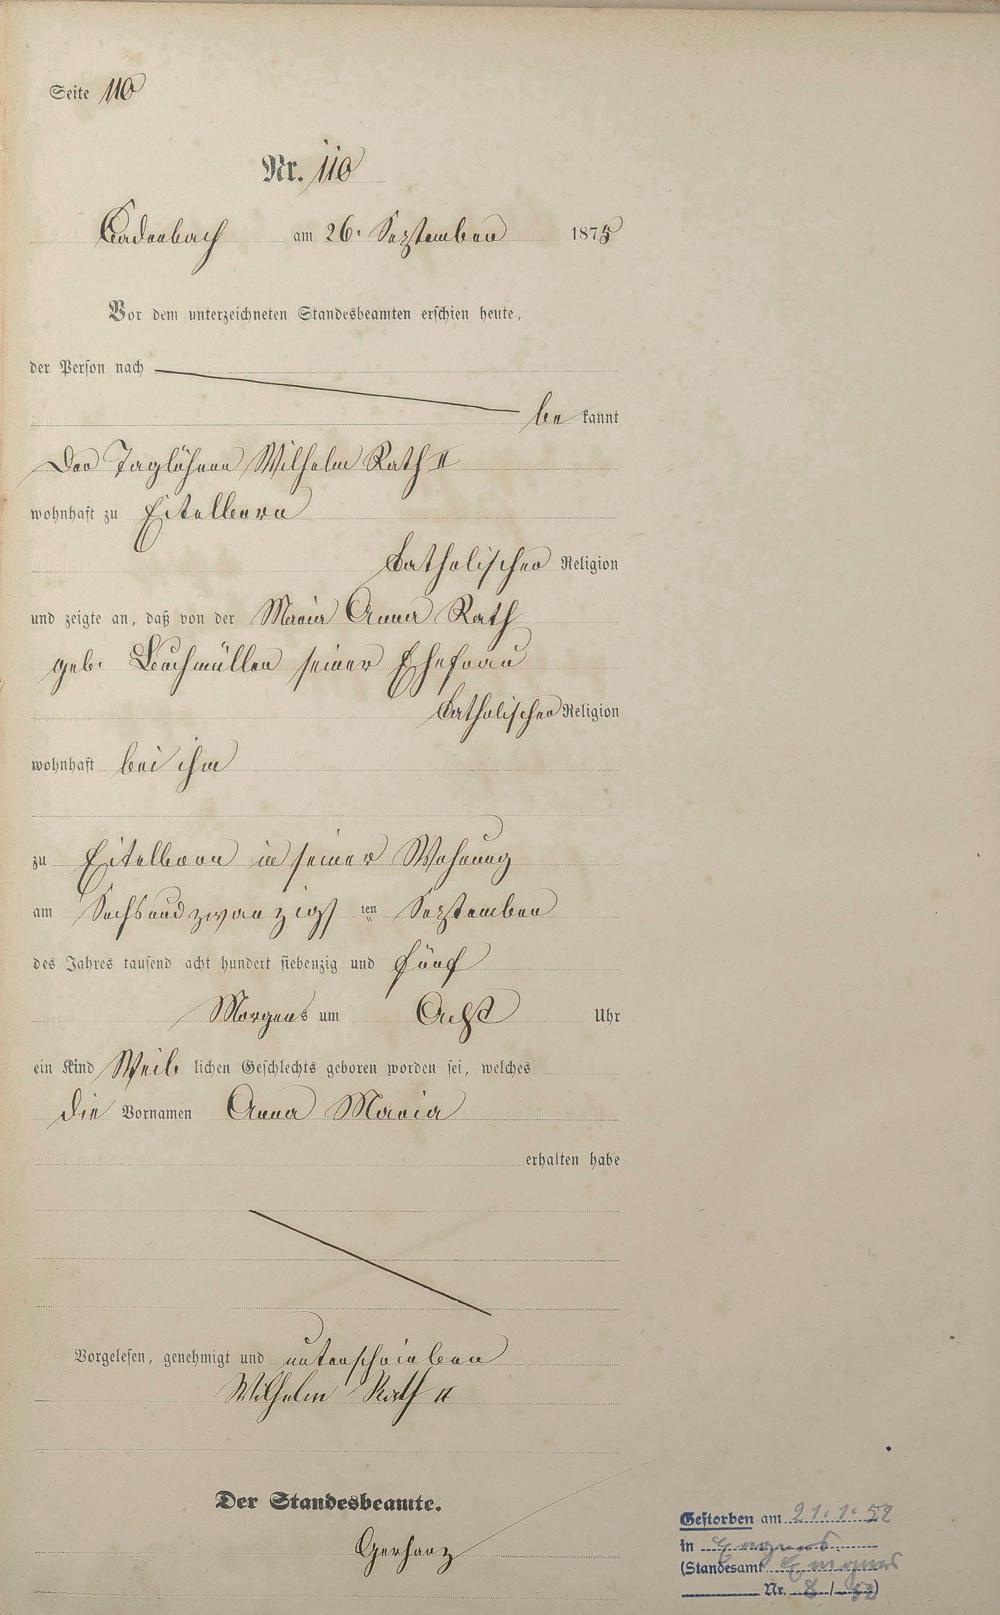 Seite 110
Nr. 110
Cadenbach am 26. September 1875
Vor dem unterzeichneten Standesbeamten erschien heute,
der Person nach
be kannt
Der Taglöhner Wilhelm Rath II
wohnhaft zu Eitelborn
katholischer Religion
und zeigte an, daß von der Maria Anna Rath
geb. Buchmüller seiner Ehefrau
katholischer Religion
wohnhaft bei ihm
zu Eitelborn in seiner Wohnung
am Sechsundzwanzigs ten September
des Jahres tausend acht hundert siebenzig und fünf
Morgens um Acht Uhr
ein Kind Weib lichen Geschlechts geboren worden sei, welches
die Vornamen Anna Maria
erhalten habe
Vorgelesen, genehmigt und unterschrieben
Wilhelm Rath II
Der Standesbeamte.
Gerhartz
Gestorben am 21.1.52
in
(Standesamt
Nr. 8 / 52)